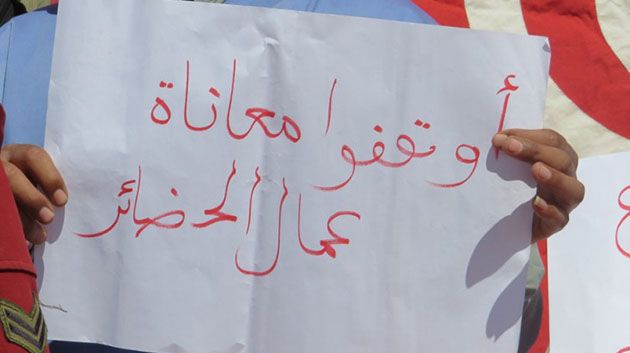 أوقفوا معاناة
عمال الحضائر